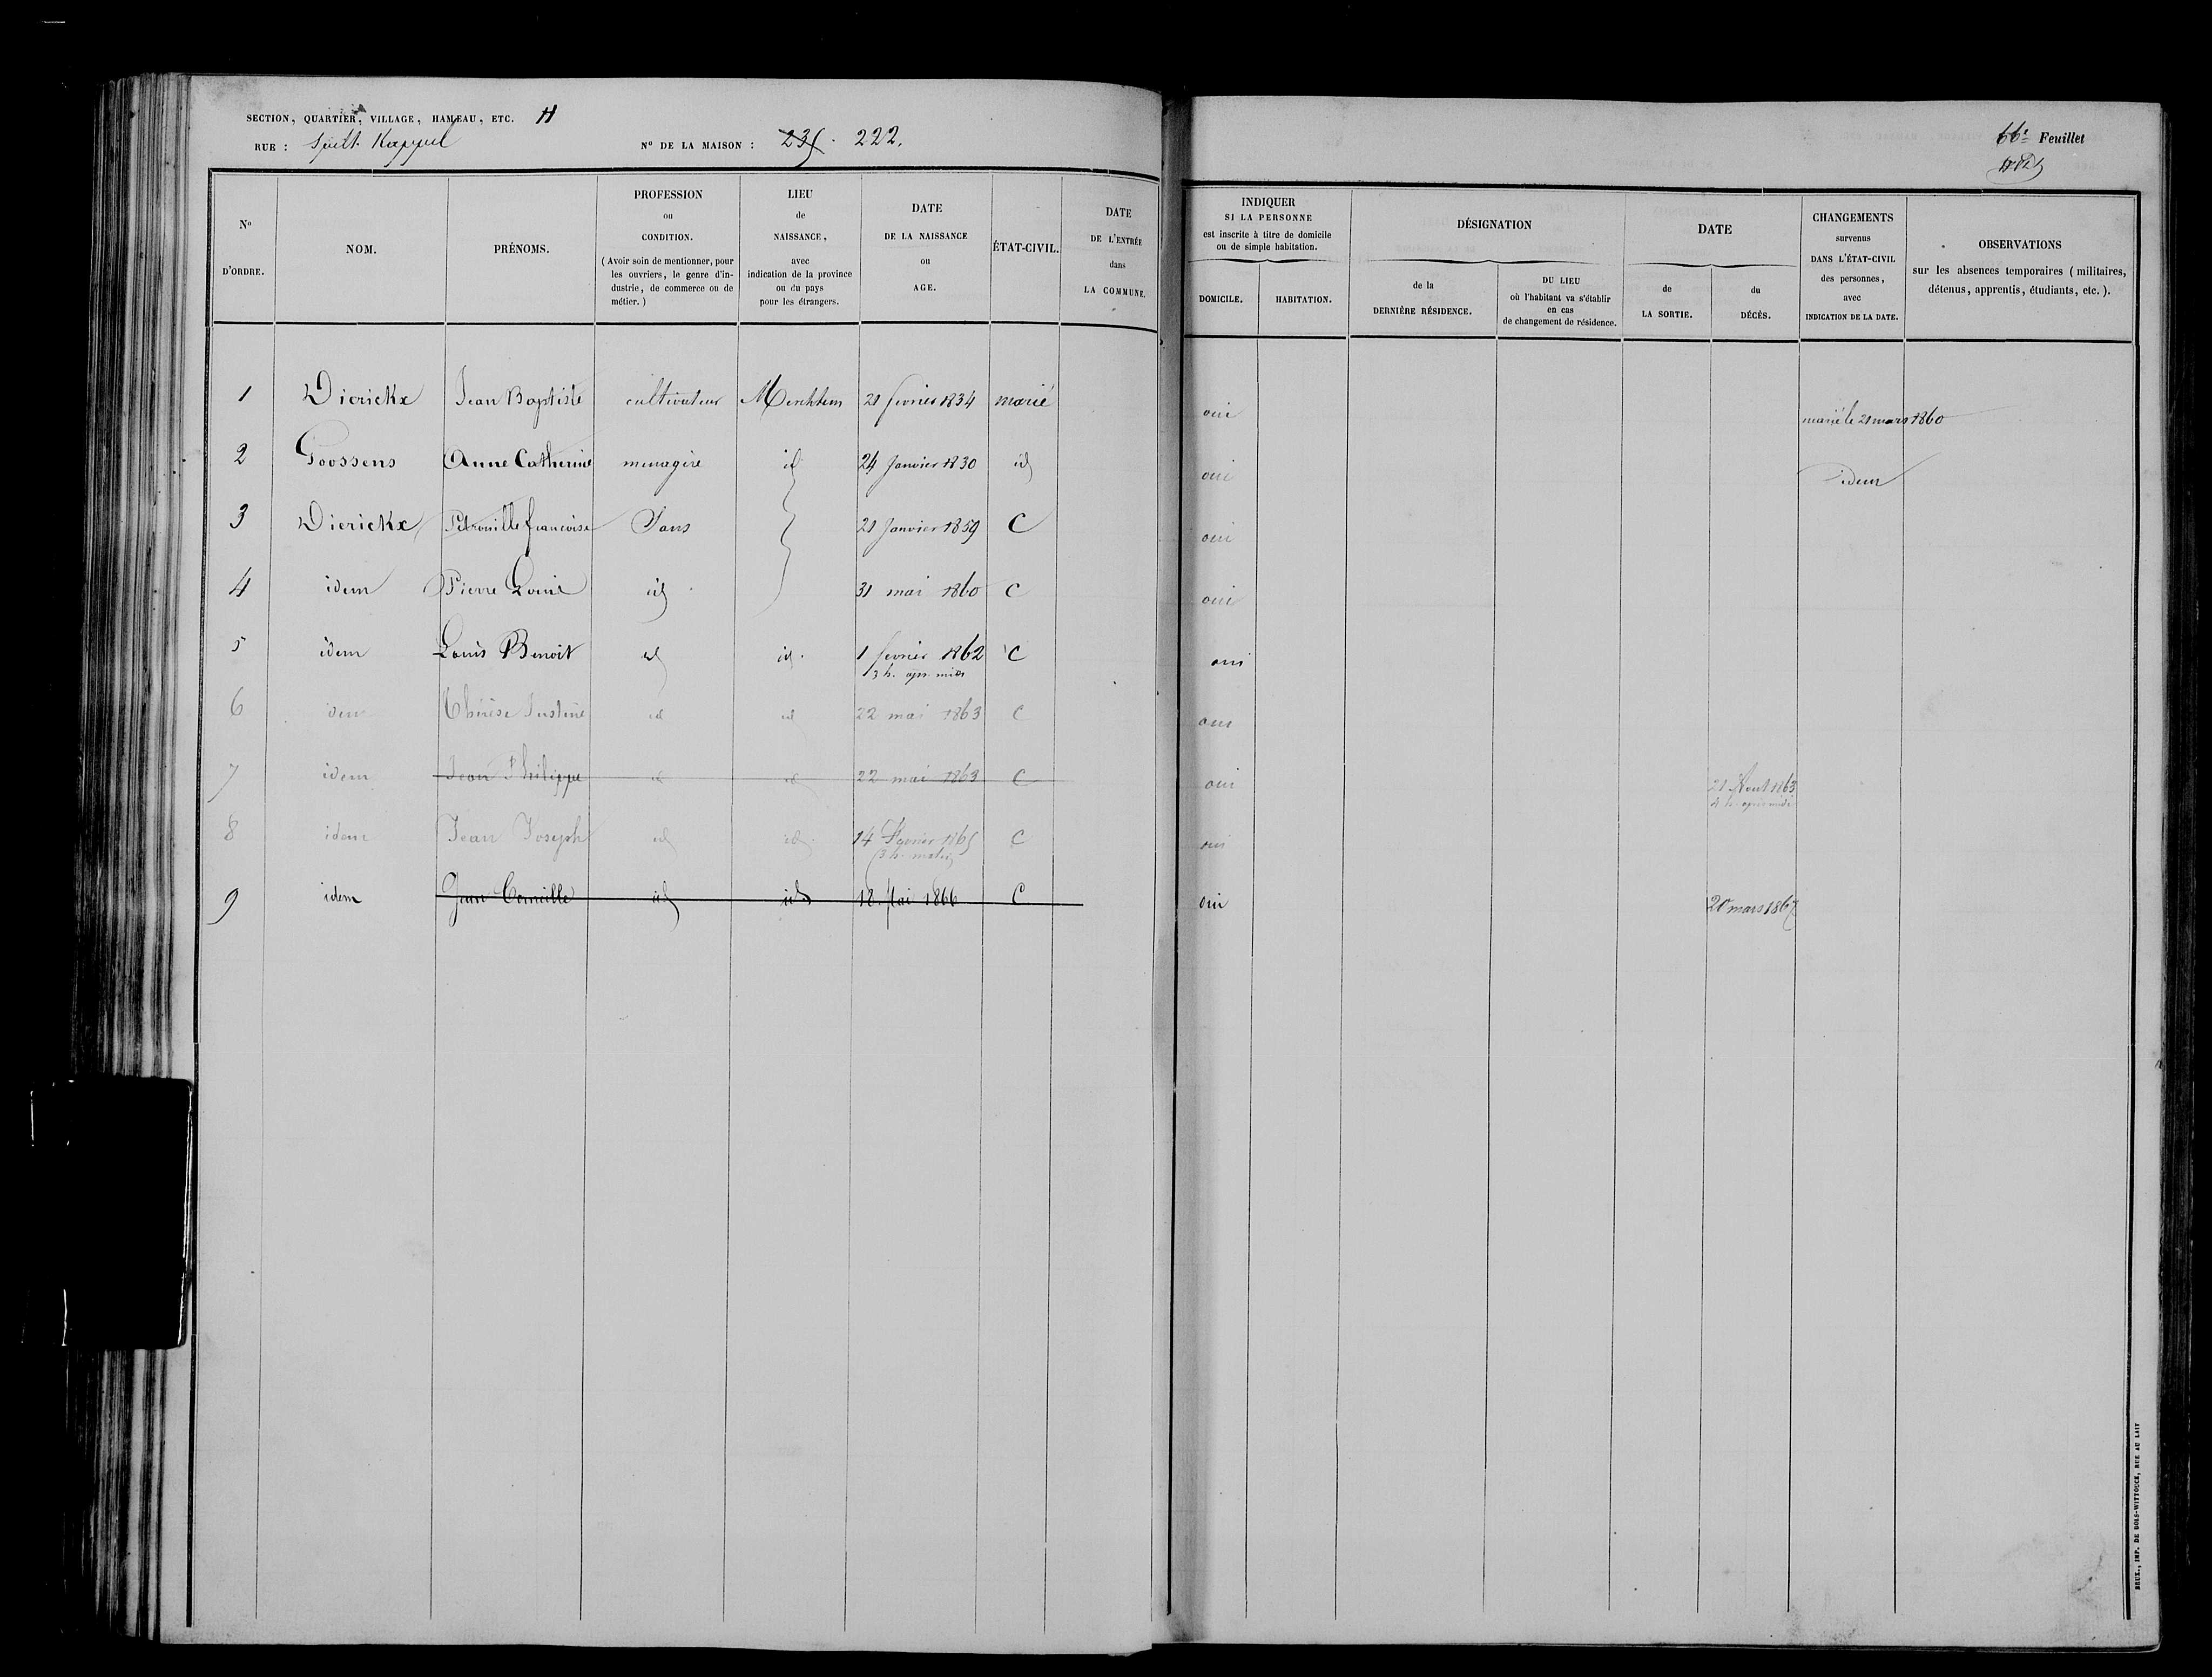 SECTION, QUARTIER, VILLAGE, HAMEAU, ETC. H
RUE : Spielt Kappel
N° DE LA MAISON : 235. 222.
66e Feuillet
N° D'ORDRE.
NOM.
PRÉNOMS.
PROFESSION
ou
CONDITION.
(Avoir soin de mentionner, pour
les ouvriers, le genre d'in-
dustrie, de commerce ou de
métier.)
LIEU
de
NAISSANCE,
avec
indication de la province
ou du pays
pour les étrangers.
DATE
DE LA NAISSANCE
ou
AGE.
ÉTAT-CIVIL.
DATE
DE L'ENTRÉE
dans
LA COMMUNE.
INDIQUER
SI LA PERSONNE
est inscrite à titre de domicile
ou de simple habitation.
DOMICILE.
HABITATION.
DÉSIGNATION
de la
DERNIÈRE RÉSIDENCE.
DU LIEU
où l'habitant va s'établir
en cas
de changement de résidence.
DATE
de
LA SORTIE.
du
DÉCÈS.
CHANGEMENTS
survenus
DANS L'ÉTAT-CIVIL
des personnes,
avec
INDICATION DE LA DATE.
OBSERVATIONS
sur les absences temporaires (militaires,
détenus, apprentis, étudiants, etc.).
1 Dierickx Jean Baptiste cultivateur Merchtem 21 fevrier 1834 marié oui marié le 21 mars 1860
2 Goossens Anne Catherine menagère id 24 Janvier 1830 id oui idem
3 Dierickx Petronille francoise Sans 21 Janvier 1859 C oui
4 idem Pierre Louis id . 31 mai 1860 C oui
5 idem Louis Benoit id id . 1 fevrier 1862 C oui
3 h. apr. midi
6 idem Thérèse Justine id id 22 mai 1863 C oui
7 idem Jean Philippe id id 22 mai 1863 C oui 21 Aout 1863
4 h. après midi
8 idem Jean Joseph id id . 14 Fevrier 1865 C oui
(3 h. matin)
9 idem Jean Corneille id id 18 Mai 1866 C oui 20 mars 1867
BRUX., IMP. DE BOLS-WITTOUCK, RUE AU LAIT